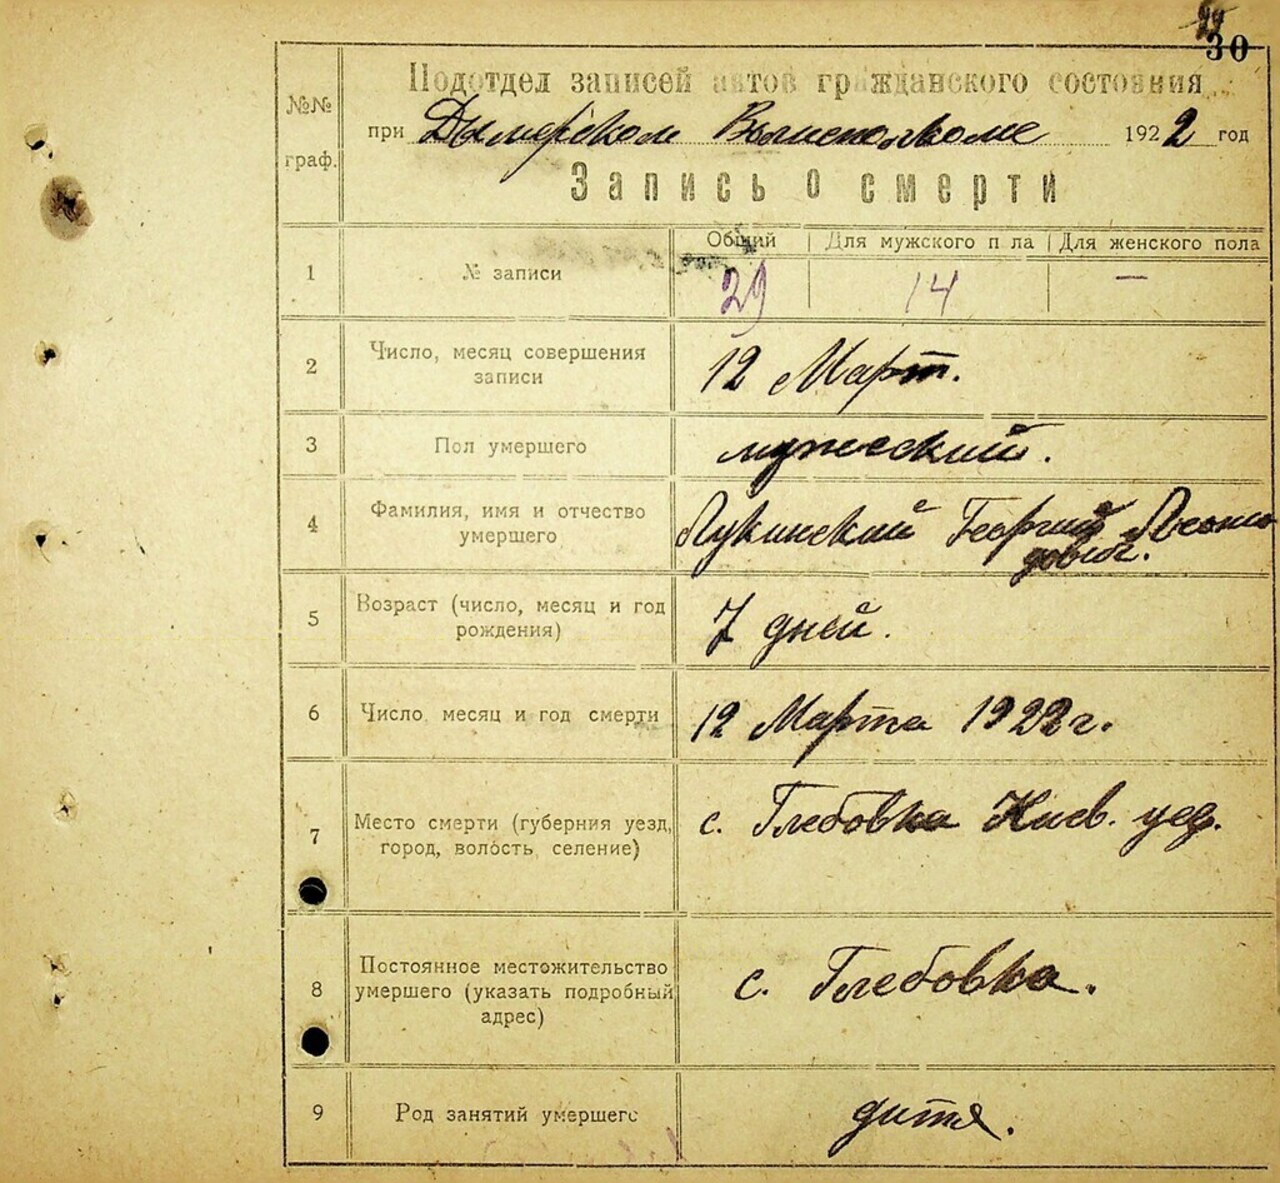 30
Подотдел записей актов гражданского состояния
№№ граф.
при Дымерском Волисполкоме 1922 год
Запись о смерти
Общий | Для мужского п ла | Для женского пола
1 № записи 29 14 —
2 Число, месяц совершения записи 12 Март.
3 Пол умершего мужеский.
4 Фамилия, имя и отчество умершего Лукинский Георгий Леони
дович.
5 Возраст (число, месяц и год рождения) 7 дней.
6 Число месяц и год смерти 12 Марта 1922 г.
7 Место смерти (губерния уезд, город, волость, селение) с. Глебовка Киев. уез.
8 Постоянное местожительство умершего (указать подробный адрес) с. Глебовка.
9 Род занятий умершего дитя.